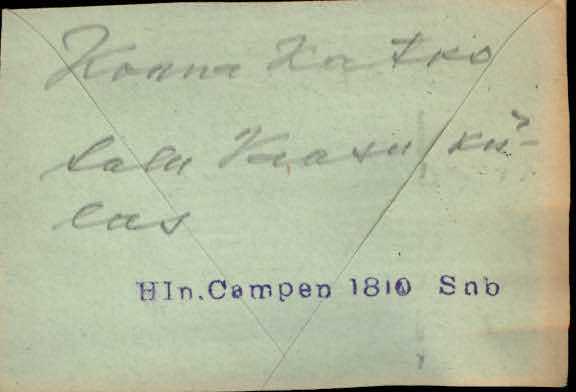 Konna Katko
talu Kaasu kü-
las
Hln.Campen 1810 Snb